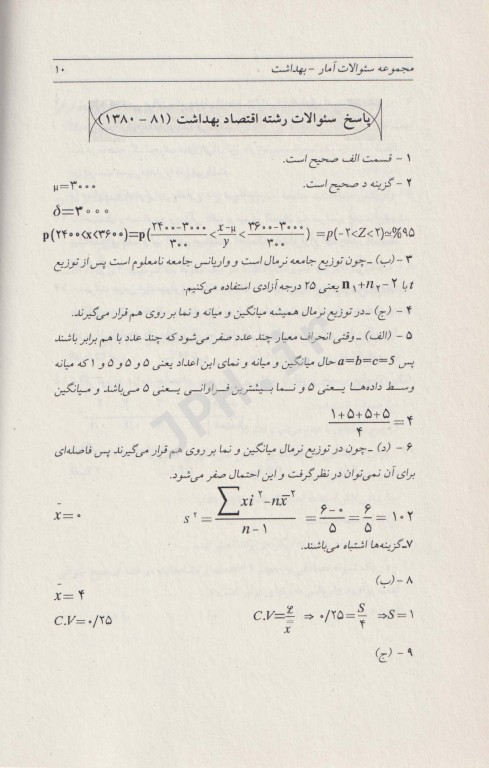 مجموعه سئوالات آمار - بهداشت ۱۰
پاسخ سئوالات رشته اقتصاد بهداشت (۸۱ - ۱۳۸۰)
۱ - قسمت الف صحیح است.
۲ - گزینه د صحیح است.
μ=۳۰۰۰
δ=۳۰۰۰
p(۲۴۰۰<x<۳۶۰۰)=p(۲۴۰۰-۳۰۰۰/۳۰۰ < x-μ/y < ۳۶۰۰-۳۰۰۰/۳۰۰) =p(-۲<Z<۲)≃%۹۵
۳ - (ب) ـ چون توزیع جامعه نرمال است و واریانس جامعه نامعلوم است پس از توزیع
t با n۱+n۲-۲ یعنی ۲۵ درجه آزادی استفاده می‌کنیم.
۴ - (ج) ـ در توزیع نرمال همیشه میانگین و میانه و نما بر روی هم قرار می‌گیرند.
۵ - (الف) ـ وقتی انحراف معیار چند عدد صفر می‌شود که چند عدد با هم برابر باشند
پس a=b=c=5 حال میانگین و میانه و نمای این اعداد یعنی ۵ و ۵ و ۵ و ۱ که میانه
وسط داده‌ها یعنی ۵ و نما بیشترین فراوانی یعنی ۵ می‌باشد و میانگین
۱+۵+۵+۵/۴ =۴
۶ - (د) ـ چون در توزیع نرمال میانگین و نما بر روی هم قرار می‌گیرند پس فاصله‌ای
برای آن نمی‌توان در نظر گرفت و این احتمال صفر می‌شود.
x̄=۰ s۲ = ∑xi۲-nx̄۲/n-۱ = ۶-۰/۵ = ۶/۵ = ۱۰۲
۷ـ گزینه‌ها اشتباه می‌باشند.
۸ - (ب)
x̄= ۴
C.V=۰/۲۵ C.V= /x̄ ⇒ ۰/۲۵= S/۴ ⇒S=۱
۹ - (ج)